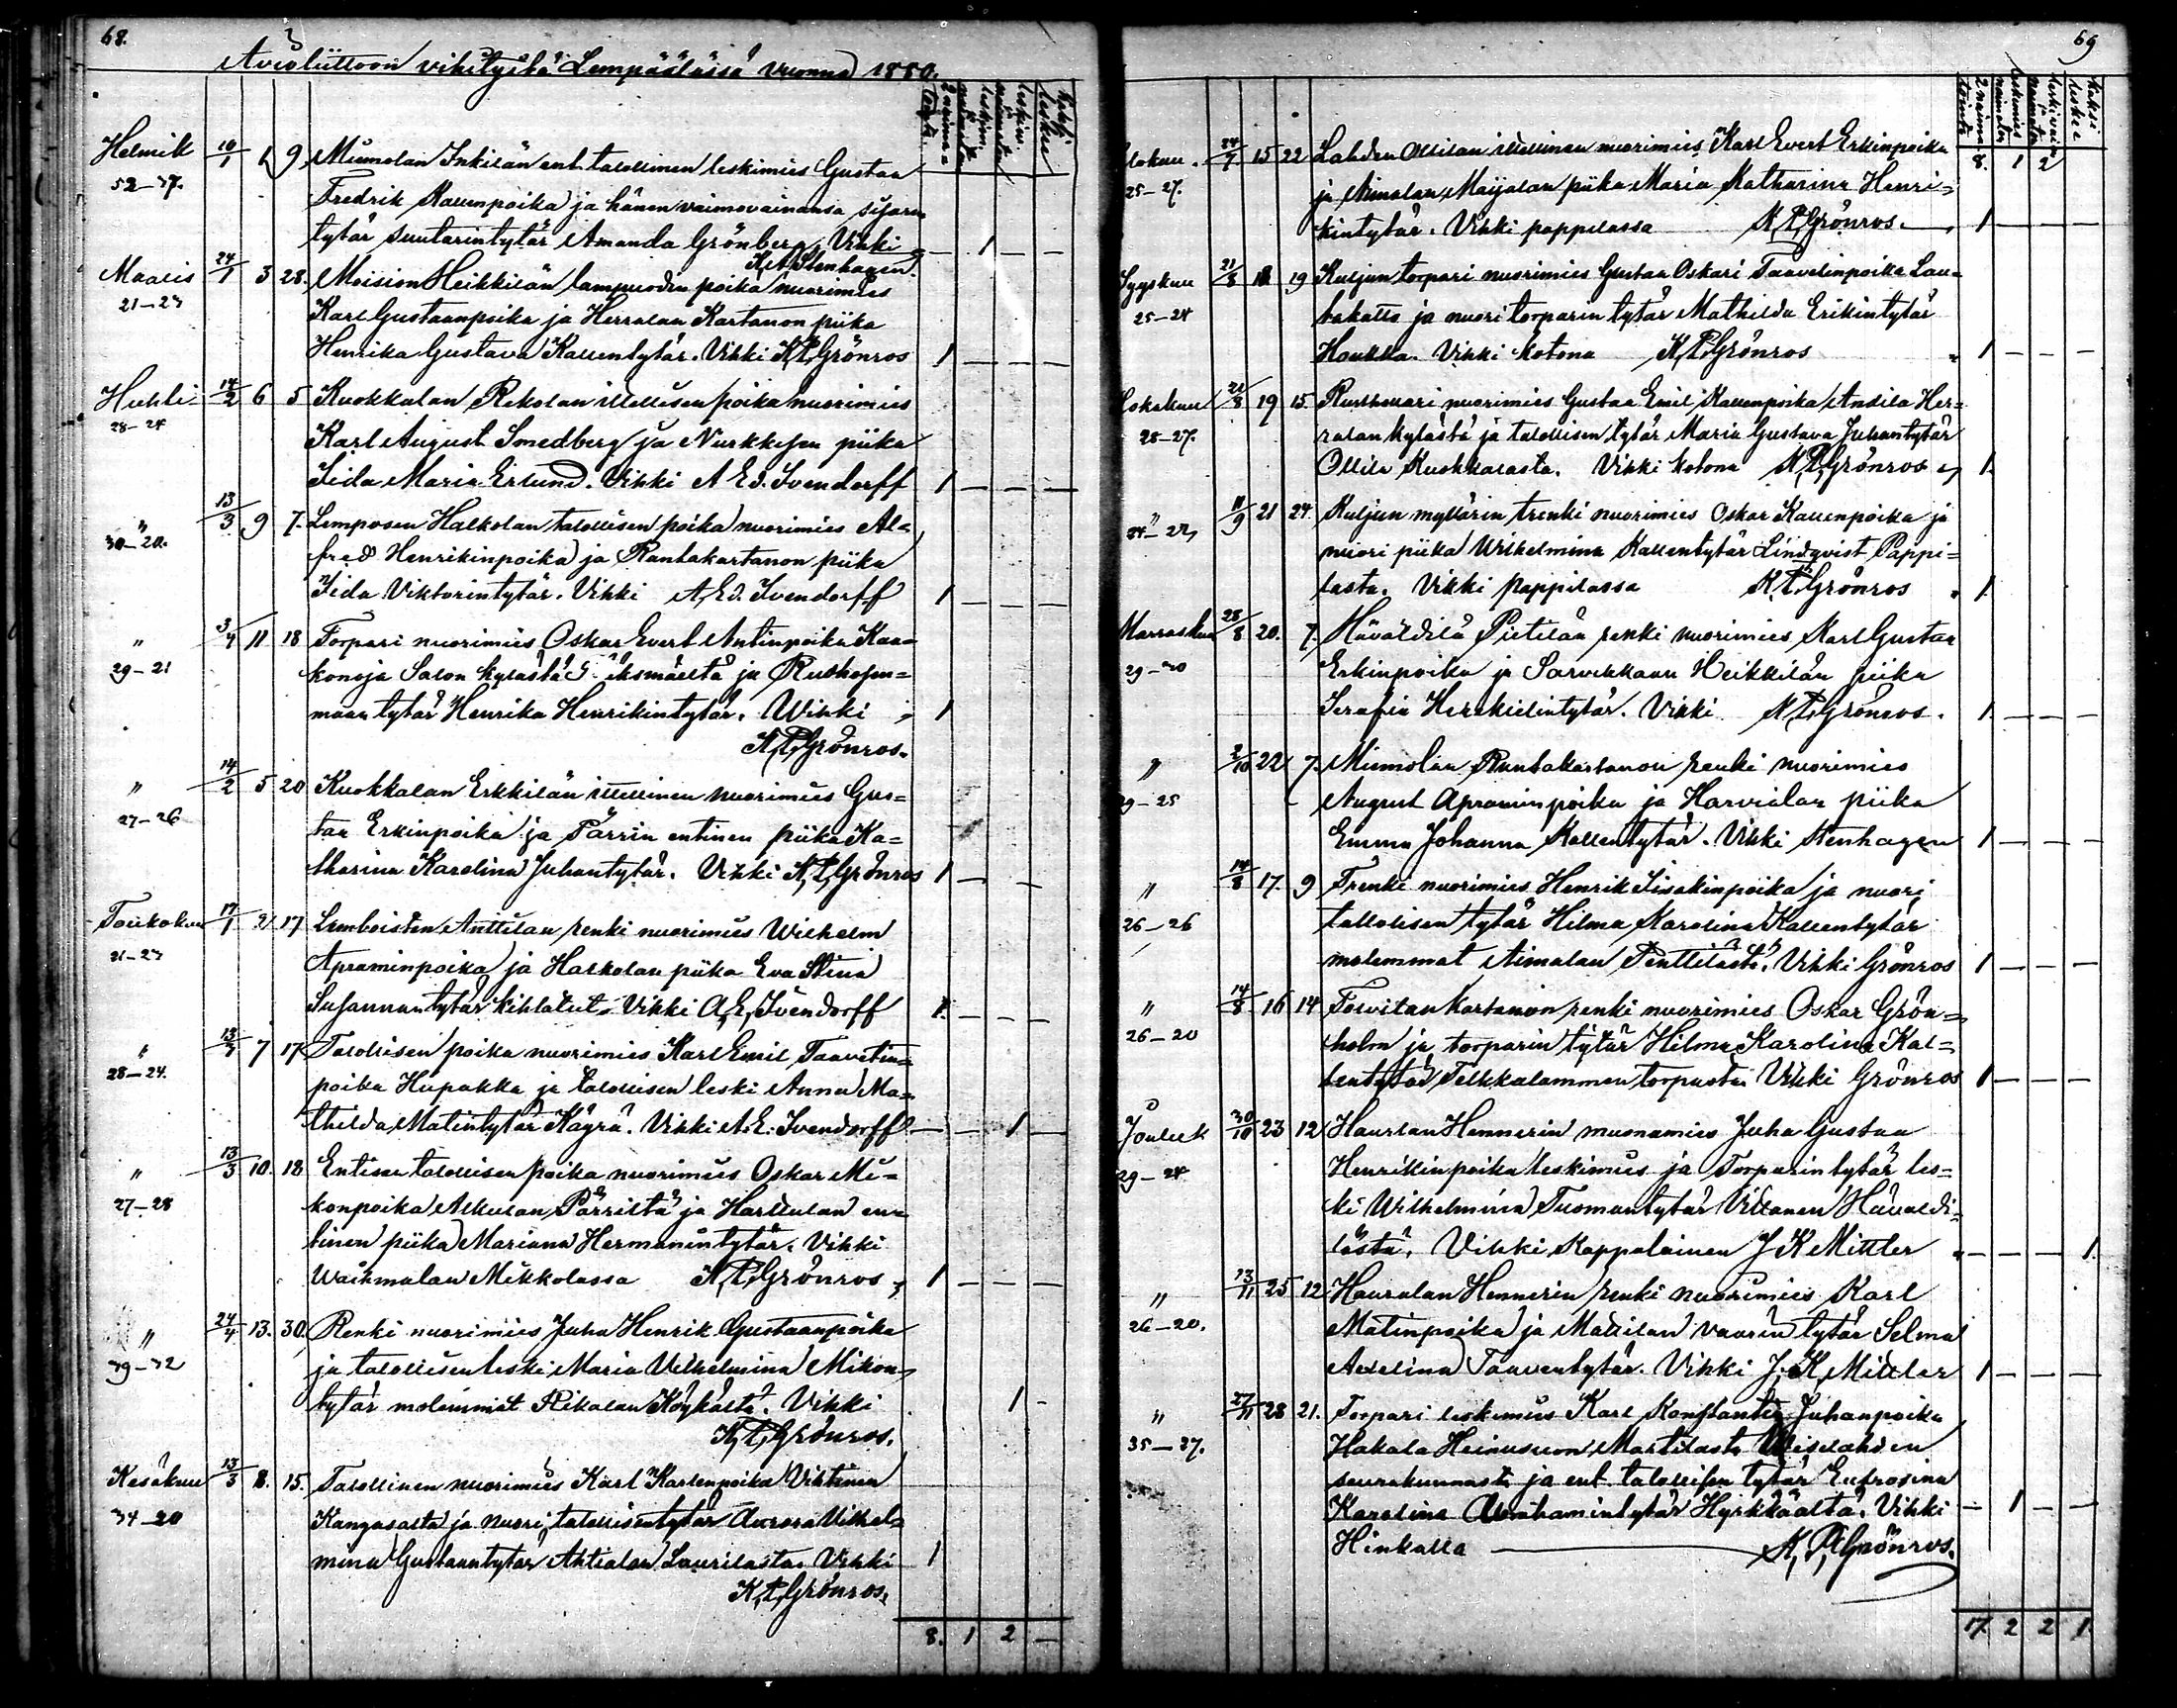 68.
Avioliittoon vihityitä Lempäälässä vuonna 1880.
Helmik 10/1 9. Miemolan Inkilän ent. talollinen leskimies Gustaa
52–37. Fredrik Kallenpoika ja hänen vaimovainansa sisaren
tytär suutarintytär Amanda Grönberg, Vihki — 1 — —
K A Stenhagen.
Maalis 24/1 3 28. Moision Heikkilän lampuodin poika nuorimies
21–23 Karl Gustaanpoika ja Herralan Kartanon piika
Henrika Gustava Kallentytär. Vihki K,P,Grönros 1 — — —
Huhti 14/2 6 5 Kuokkalan Rekolan itellisen poika nuorimies
28–24 Karl August Smedberg ja Nurkkesen piika
Iida Maria Erlund. Vihki A Ed. Ivendorff 1 — — —
" 13/3 9 7. Lempoisen Halkolan talollisen poika nuorimies Al=
30–20. fred Henrikinpoika ja Rantakartanon piika
Iida Viktorintytär. Vihki A, Ed. Ivendorff 1 — — —
" 3/4 11 18 Torpari nuorimies Oskar Evert Antinpoika Kaa=
29–21 konoja Salon kylästä ja
maan tytär Henrika Henrikintytär. Wihki 1
K,P,Grönros.
" 14/2 5 20 Kuokkalan Erkkilän itellinen nuorimies Gus=
27–26 taa Erkinpoika ja Pärrin entinen piika Ka=
tharina Karolina Juhantytär. Vihki K,P,Grönros 1 — —
Toukokuu 17/1 2 17 Lemboisten Anttilan renki nuorimies Wilhelm
21–23 Apraminpoika ja Halkolan piika Eva Stina
Susannantytär kihlatut. Vihki A,E,Ivendorff 1. — — —
" 13/3 7 17 Talollisen poika nuorimies Karl Emil Taavetin=
28–24. poika Hupakka ja talollisen leski Anna Ma=
thilda Matintytär Kägrä. Vihki A.E. Ivendorff — — 1 —
" 13/3 10. 18 Entisen talollisen poika nuorimies Oskar Mi=
27–28 konpoika Alkulan Pärriltä ja Harkulan en=
tinen piika Mariana Hermanintytär. Vihki
Waihmalan Mikkolassa K,P,Grönros, 1 — — —
" 24/4 13. 30. Renki nuorimies Juha Henrik Gustaanpoika
39–32 ja talollisen leski Maria Vilhelmina Mikon=
tytär molemmat Rikalan Köykästä. Vihki 1 -
K,P,Grönros.
Kesäkuu 13/3 8. 15. Talollinen nuorimies Karl Kallenpoika Vihtinen
34–20 Kangasalta ja nuori talollisentytär Aurora Vilhel=
mina Gustaantytär Ahtialan Laurilasta. Vihki 1
K,P,Grönros,
8. 1 2 —
69
24/7 15 22 Lahden Ollilan itellinen nuorimies Karl Evert Erkinpoika 8. 1 2
25–27. ja Aimalan Maijalan piika Maria Katharina Henri=
kintytär. Vihki pappilassa K,P,Grönros. 1 — — —
Syyskuu 21/8 18 19 Kuljun torpari nuorimies Gustaa Oskari Taavetinpoika Lau=
25–24 takatto ja nuori torparin tytär Mathilda Erikintytär
Haukka. Vihki kotona K,P,Grönros 1 — — —
Lokakuu 21/8 19 15. Rusthollari nuorimies Gustaa Emil Kallenpoika Anlila Her=
28–27. ralan kylästä ja talollisen tytär Maria Gustava Juhantytär
Ollila Kuokkalasta. Vihki kotona K,P,Grönros 1.
" 11/9 21 24. Kuljun myllärin trenki nuorimies Oskar Kallenpoika ja
24–22, nuori piika Wilhelmina Kallentytär Lindqvist Pappi=
lasta. Vihki pappilassa K,P,Grönros 1
Marraskuu 28/8 20. 7. Hävättilä Pietilän renki nuorimies Karl Gustaa
29–30 Erkinpoika ja Sarvikkaan Heikkilän piika
Serafia Heskielintytär. Vihki K,P,Grönros. 1. — — —
" 2/10 22 7. Miemolan Rantakartanon renki nuorimies
29–25 August Apraminpoika ja Harvialan piika
Emma Johanna Kallentytär. Vihki Stenhagen 1 — — —
" 14/8 17. 9 Trenki nuorimies Henrik Iisakinpoika ja nuori
26–26 tallolisen tytär Hilma Karolina Kallentytär
molemmat Aimalan Penttilästä. Vihki Grönros 1 — — —
" 14/8 16 14 Toivilan kartanon renki nuorimies Oskar Grön=
26–20 holm ja torparin tytär Hilma Karolina Kal=
lentytär Telkkälammen torpasta. Vihki Grönros 1 — — —
Jouluk 30/10 23 12 Haurlan Hennerin muonamies Juha Gustaa
29–24 Henrikinpoika leskimies ja Torparin tytär les=
ki Wilhelmina Tuomantytär Viktanen Hävätti=
lästä. Vihki Kappalainen J K Mittler — — — 1.
" 13/11 25 12 Hauralan Hennerin renki nuorimies Karl
26–20. Matinpoika ja Mattilan vaarin tytär Selma
Axelina Taaventytär. Vihki J,K,Mittler 1 — — —
" 27/11 28 21. Torpari leskimies Karl Konstantin Juhanpoika
35–27. Hakala Heinusuon Martilasta Wesilahden
seurakunnasta ja ent. talollisen tytär Eufrosina
Karolina Abrahamintytär Hyrkkäältä. Vihki — 1 — —
Hinkalla — K,P,Grönros.
17. 2 2 1